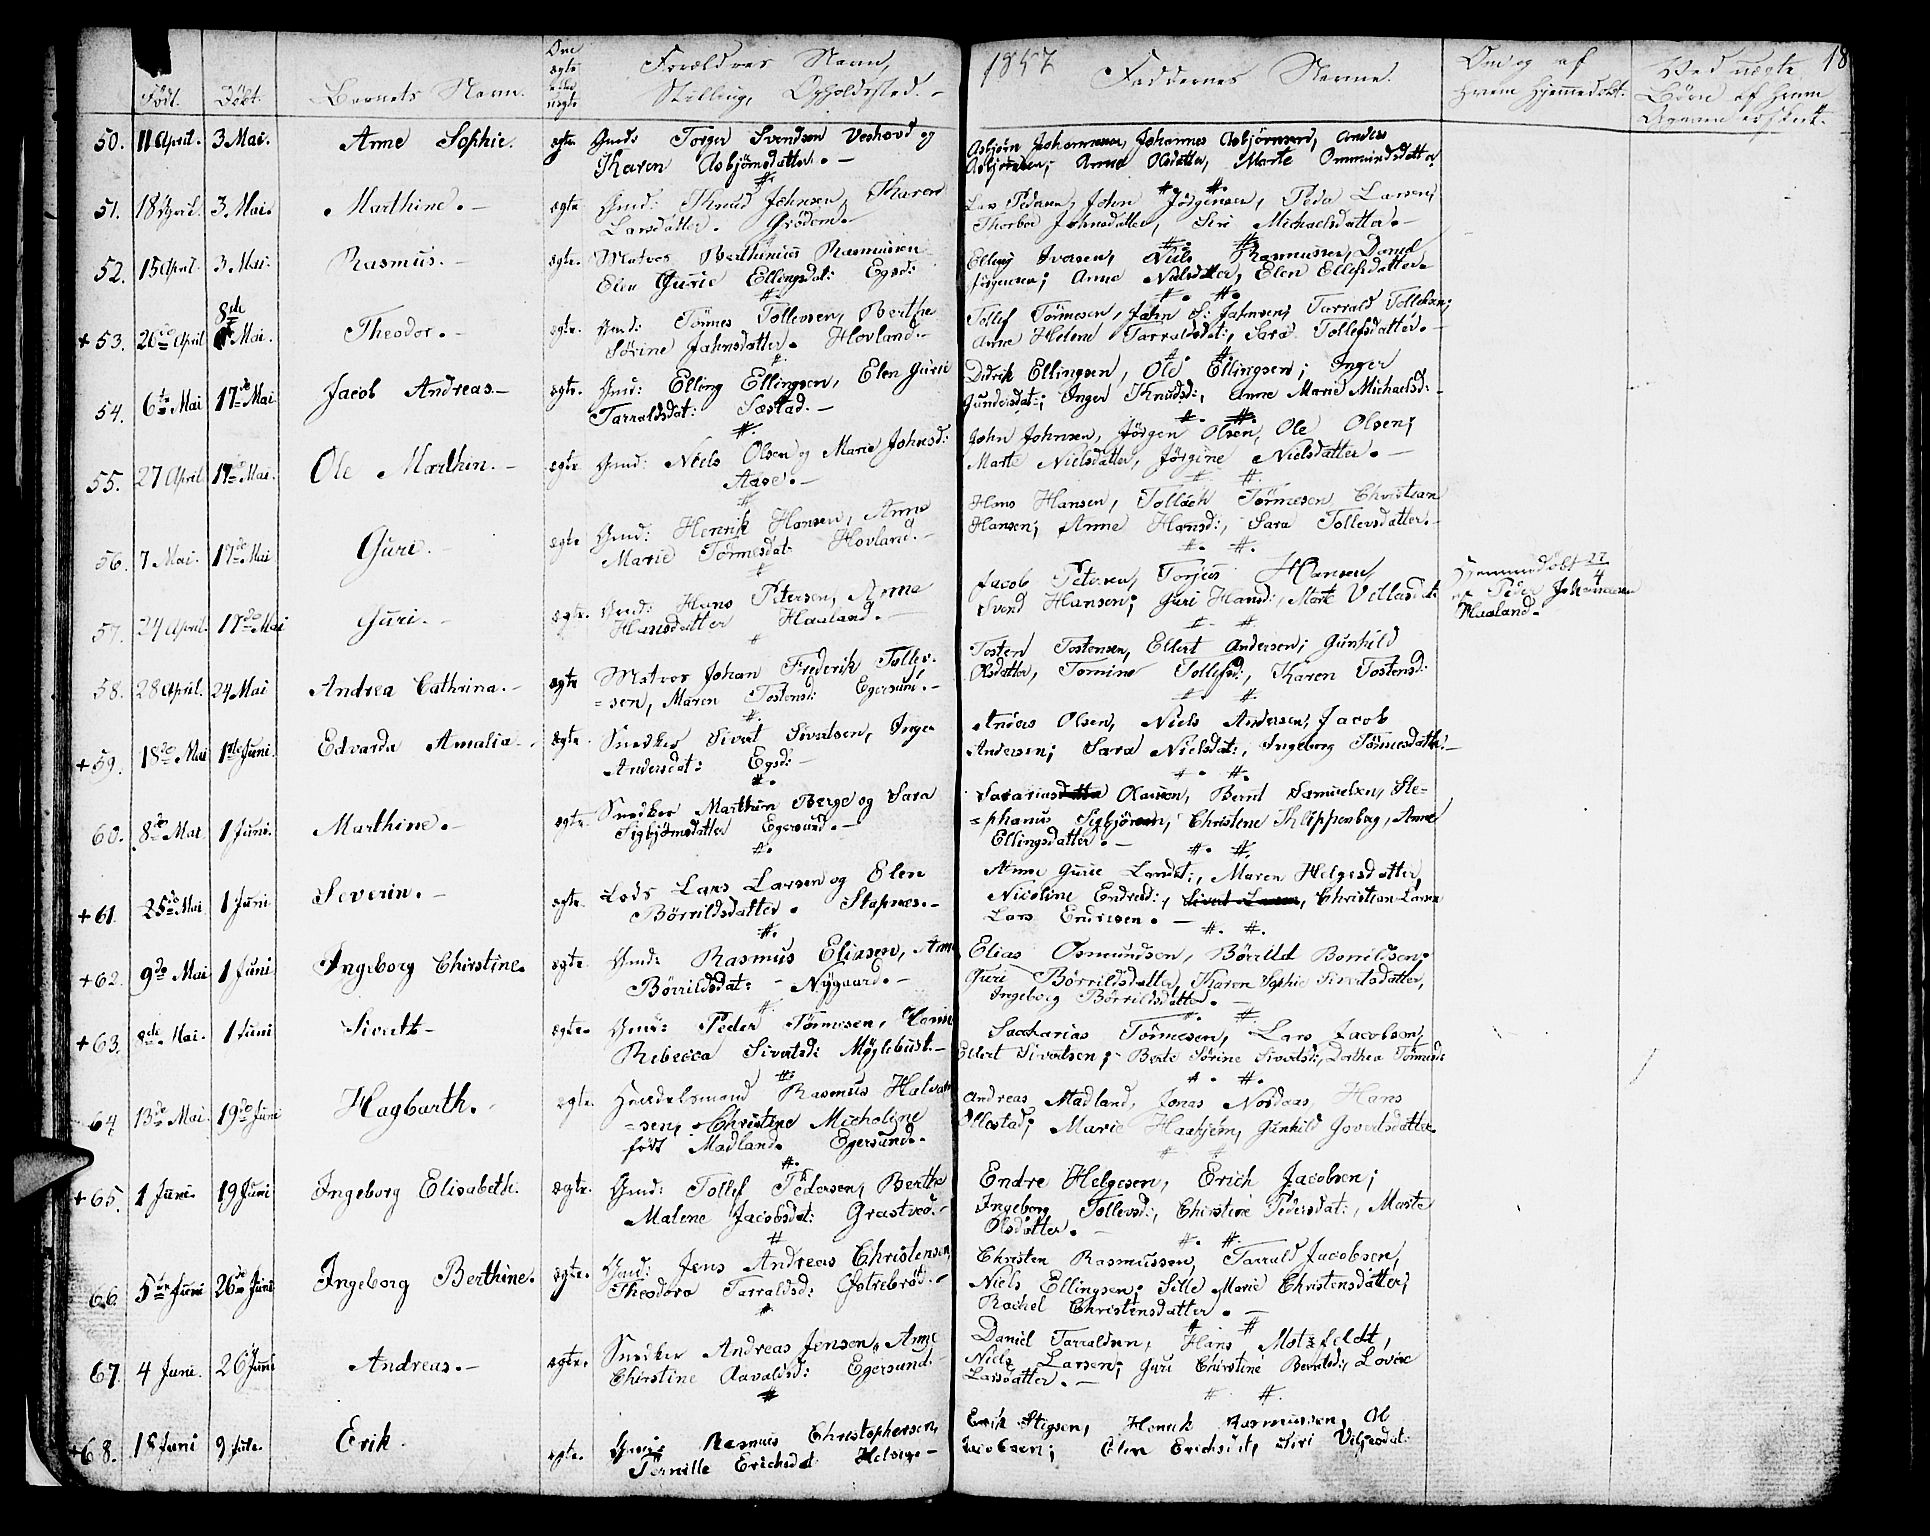 Født. Døbt. Barnets Navn. Om ægte eller uægte Forældres Navn, Stilling, Opholdssted. –
1857 Faddernes Navne. Om og af hvem hjemmedøbt. Ved uægte Børn af hvem 18
50. 11 April. 3 Mai. Anne Sophie. ægte Gmd: Torger Svendsen Veshovd og
Karen Asbjørnsdatter. –
Asbjørn Johannesen, Johannes Asbjørnsen, Anders
Asbjørnsen; Anna Olsdatter, Marte Ommundsdatter
51. 18 April. 3 Mai. Marthine. – ægte Gmd: Knud Johnsen, Karen
Larsdatter. Grødem. –
Lars Pedersen, John Jørgensen, Peder Larsen,
Thorbor Johnsdatter, Siri Michaelsdatter. –
52. 15 April. 3 Mai. Rasmus. – ægte. Matros Berthinius Rasmussen
Elen Gurie Ellingsdat: Egsd:
Elling Iversen, Niels Rasmussen, Daniel
Jørgensen; Anne Nielsdatter, Elen Ellefsdatter. –
+ 53. 26de April 8de Mai. Theodor. – ægte. Gmd: Tønnes Tollevsen, Berthe
Sørine Jahnsdatter. Hovland. –
Tollef Tønnesen, Jahn S: Jahnsen, Tarrald Tollefsen;
Anne Helene Tarraldsdat:, Sara Tollefsdatter. –
54. 6te Mai 17de Mai Jacob Andreas. – ægte. Gmd: Elling Ellingsen, Elen Gurie
Tarraldsdat: Sæstad. –
Didrik Ellingsen, Ole Ellingsen; Inger
Gundersdat:; Inger Knudsd:, Anne Marie Michaelsd: –
55. 27 April 17de Mai. Ole Marthin. – ægte Gmd: Niels Olsen og Marie Johnsd:
Aase. –
John Johnsen, Jørgen Olsen, Ole Olsen;
Marte Nielsdatter, Jørgine Nielsdatter. –
56. 7 Mai. 17de Mai Guri. – ægte Gmd: Henrik Hansen, Anne
Marie Tønnesdat: Hovland. –
Hans Hansen, Tollach Tønnesen Christian
Hansen; Anne Hansd:, Sara Tollevsdatter. –
57. 24 April. 17de Mai Guri. – ægte. Gmd: Hans Petersen, Anne
Hansdatter Haaland. –
Jacob Petersen, Torjus Hansen,
Svend Hansen; Guri Hansd:, Marte Villasdat:
Hjemmedøbt 27/4
af Peder Johannesen
Haaland.
58. 28 April. 24 Mai Andrea Cathrina. – ægte Matros Johan Frederik Tollev-
=sen, Maren Tostensd: Egersund. –
Tosten Tostensen, Ellert Andersen; Gunhild
Olsdatter, Tomine Tollefsd:, Karen Tostensd:
+ 59. 18de Mai 1ste Juni. Edvarda Amalia. – ægte. Snedker Sivert Sivertsen, Inger
Andersdat: Egsd: –
Anders Olsen, Niels Andersen, Jacob
Andersen; Sara Nielsdat:, Ingeborg Tønnesdatter. –
60. 8de Mai 1 Juni. Marthine. – ægte. Snedker Marthin Berge og Sara
Sigbjørnsdatter Egersund. –
Olausen, Bernt Samuelsen, Ste=
=phanus Sigbjørnsen; Christene Klippenberg, Anne
Ellingsdatter. –
+ 61. 25de Mai 1 Juni Severin. – ægte. Lods Lars Larsen og Elen
Børrildsdatter. Stapnes. –
Anne Gurie Larsd:, Maren Helgesdatter,
Nicoline Endresd:, Sivert Larsen, Christian Larsen
Lars Endresen. –
+ 62. 9de Mai 1 Juni Ingeborg Chirstine. ægte Gmd: Rasmus Eliasen, Anne
Børrildsdat: – Nygaard. –
Elias Osmundsen, Børrild Borrildsen;
Guri Børrildsdatter, Karen Sophie Sivertsdatter,
Ingeborg Børrildsdatter. –
+ 63. 8de Mai. 1 Juni Sivert – ægte. Gmd: Peder Tønnesen,
Rebecca Sivertsd: Møglebust. –
Saccharias Tønnesen, Lars Jacobsen,
Ellert Sivertsen; – Berte Sørine Sivertsd:, Dorthea Tønnesd:
64. 13de Mai. 19de Juni Hagbarth. – ægte. Handelsmand Rasmus Halvor
=sen, Christine Micholine
født Madland. Egersund. –
Andreas Madland, Jonas Nordaas, Hans
Ollestad; Marie Haahjem, Gunhild Govertsdatter.
+ 65. 1 Juni. 19 Juni Ingeborg Elisabeth. ægte. Gmd: Tollef Pedersen, Berthe
Malene Jacobsdat: Grastved. –
Endre Helgesen, Erich Jacobsen;
Ingeborg Tollevsd:, Chirstine Pedersdat:, Marte
Olsdatter. –
66. 5te Juni 26de Juni Ingeborg Berthine. ægte. Gmd: Jens Andreas Christensen,
Theodora Tarraldsd: Østrebrød. –
Christen Rasmussen, Tarrald Jacobsen,
Niels Ellingsen; Sille Marie Christensdatter;
Rachel Christensdatter. –
67. 4 Juni. 26 Juni Andreas. – ægte. Snedker Andreas Jensen, Anne
Chirstine Aavaldsd: Egersund. –
Daniel Tarraldsen, Hans Motzfeldt,
Niels Larsen; Guri Chirstine Berntsd:, Lovise
Larsdatter. –
+ 68. 18 Juni 9 Juli. Erik. ægte. Gmd: Rasmus Christophersen,
Pernille Erichsdat Helvigs –
Erik Stigsen, Henrik Rasmussen, Ol
Jacobsen; Elen Erichsdat, Siri Veljesdat: